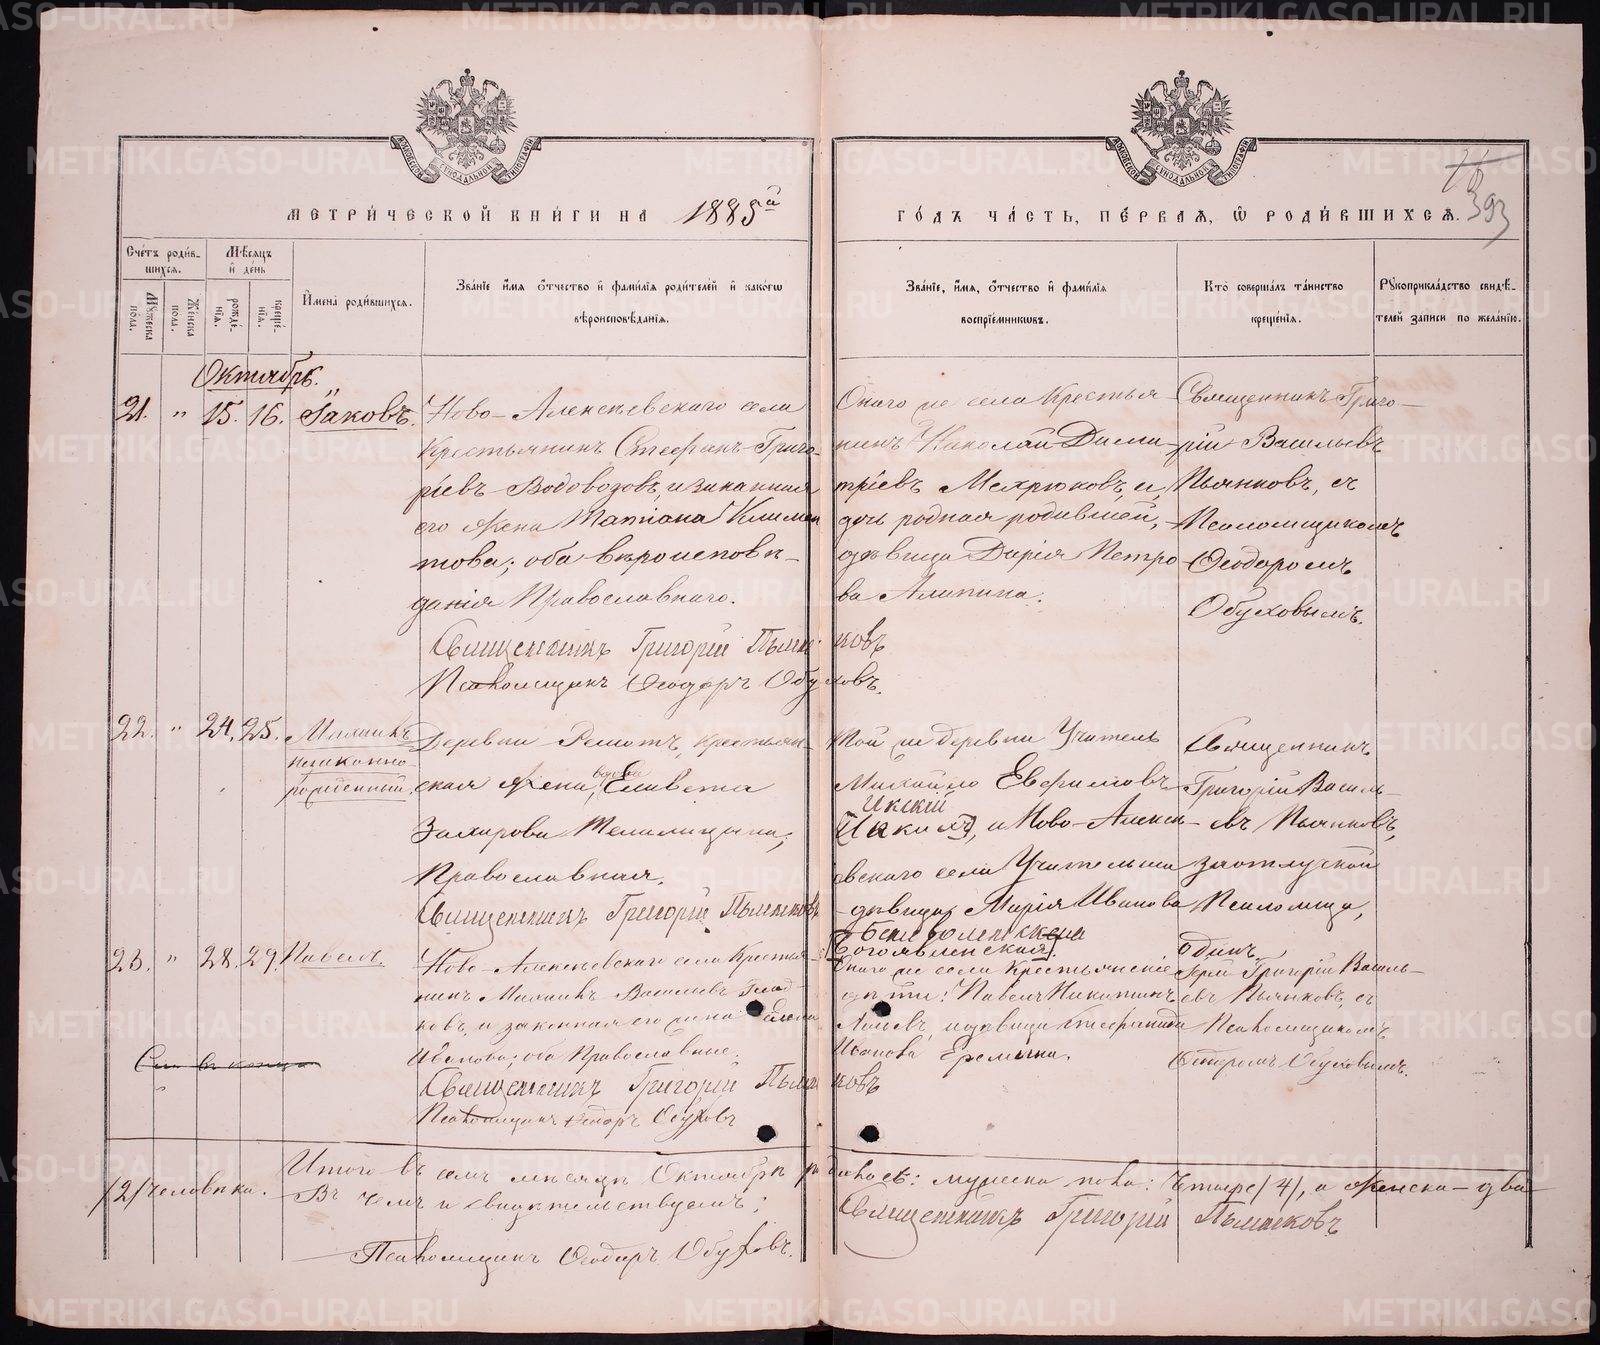 МЕТРИ́ЧЕСКОЙ КНИ́ГИ НА 1885й
ГО́ДЪ ЧА́СТЬ, ПЕ́РВАЯ, Ѡ РОДИ́ВШИХСЯ.
393
Сче́тъ роди́в-
шихся.
Мѣ́сяцъ
и́ де́нь
Му́жеска пола.
Же́нска пола.
рожде́-
нїя.
креще́-
нїя.
И҆мена̀ роди́вшихся.
Зва́нїе и҆мя ѻ҆́тчество и҆ фами́лїя роди́телей и҆ како́гѡ
вѣроисповѣ́данїя.
Зва́нїе, и҆́мя, ѻ҆́тчество и҆ фами́лїя
воспрїе́мникѡвъ.
Кто̀ соверша́лъ та́инство
креще́нїя.
Рꙋкоприкла́дство свидѣ́-
телей за́писи по жела́нїю.
Октябрь.
21. " 15. 16. Іаковъ.
Ново-Алексѣевскаго села
Крестьянинъ Стефанъ Григо-
ріевъ Водовозовъ, и законная
его жена Татіана Климен
това; оба вѣроисповѣ-
данія Православнаго.
Священникъ Григорій Пьянковъ
Псаломщикъ Ѳеодоръ Обуховъ.
Онаго же села Крестья-
нинъ Николай Дими-
тріевъ Мехрюковъ, и,
дочь родная родившей,
дѣвица Дарія Петро
ва Алипина.
Священникъ Григо-
рій Васильевъ
Пьянковъ, съ
Псаломщикомъ
Ѳеодоромъ
Обуховымъ.
22. " 24. 25. Михаилъ
незаконно-
рожденный.
Деревни Решотъ, крестьян-
ская жена, вдова Елисавета
Захарова
Православная.
Священникъ Григорій Пьянковъ
Той же деревни Учитель
Михайло Евфимовъ
Икскій
и Ново-Алексѣ-
евскаго села Учительша
дѣвица, Марія Иванова
Богоявленская.
Священникъ
Григорій Василь-
евъ Пьянковъ,
за отлучкой
Псаломщ.,
одинъ.
23. " 28. 29. Павелъ
Ново-Алексѣевскаго села Крестья-
нинъ Михаилъ Василіевъ
ковъ, и законная его жена
Иванова; оба Православные.
Священникъ Григорій Пьянковъ
Псаломщикъ Ѳеодоръ Обуховъ
Онаго же села Крестьянскіе
дѣти: Павелъ Никитинъ
и дѣвица Стефанида
Иванова Еремина.
Іерей Григорій Василь-
евъ Пьянковъ, съ
Псаломщикомъ
Ѳедоромъ Обуховымъ.
Итого въ семъ мѣсяцѣ Октябрѣ родилось: мужеска пола: Четыре /4/, а женска - два
/2/ человѣка. Въ чемъ и свидѣтельствуемъ;
Священникъ Григорій Пьянковъ
Псаломщикъ Ѳеодоръ Обуховъ.
METRIKI.GASO-URAL.RU